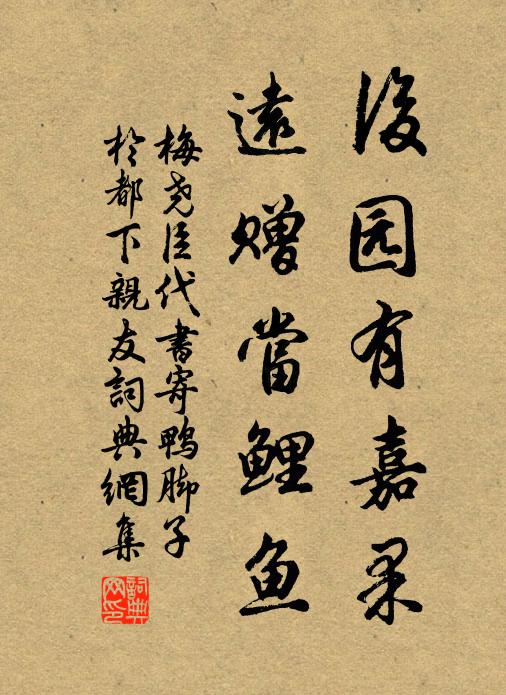 後园有嘉果
遠赠當鲤鱼
梅尧臣代書寄鸭脚子
於都下親友詞典網集
詞典网印